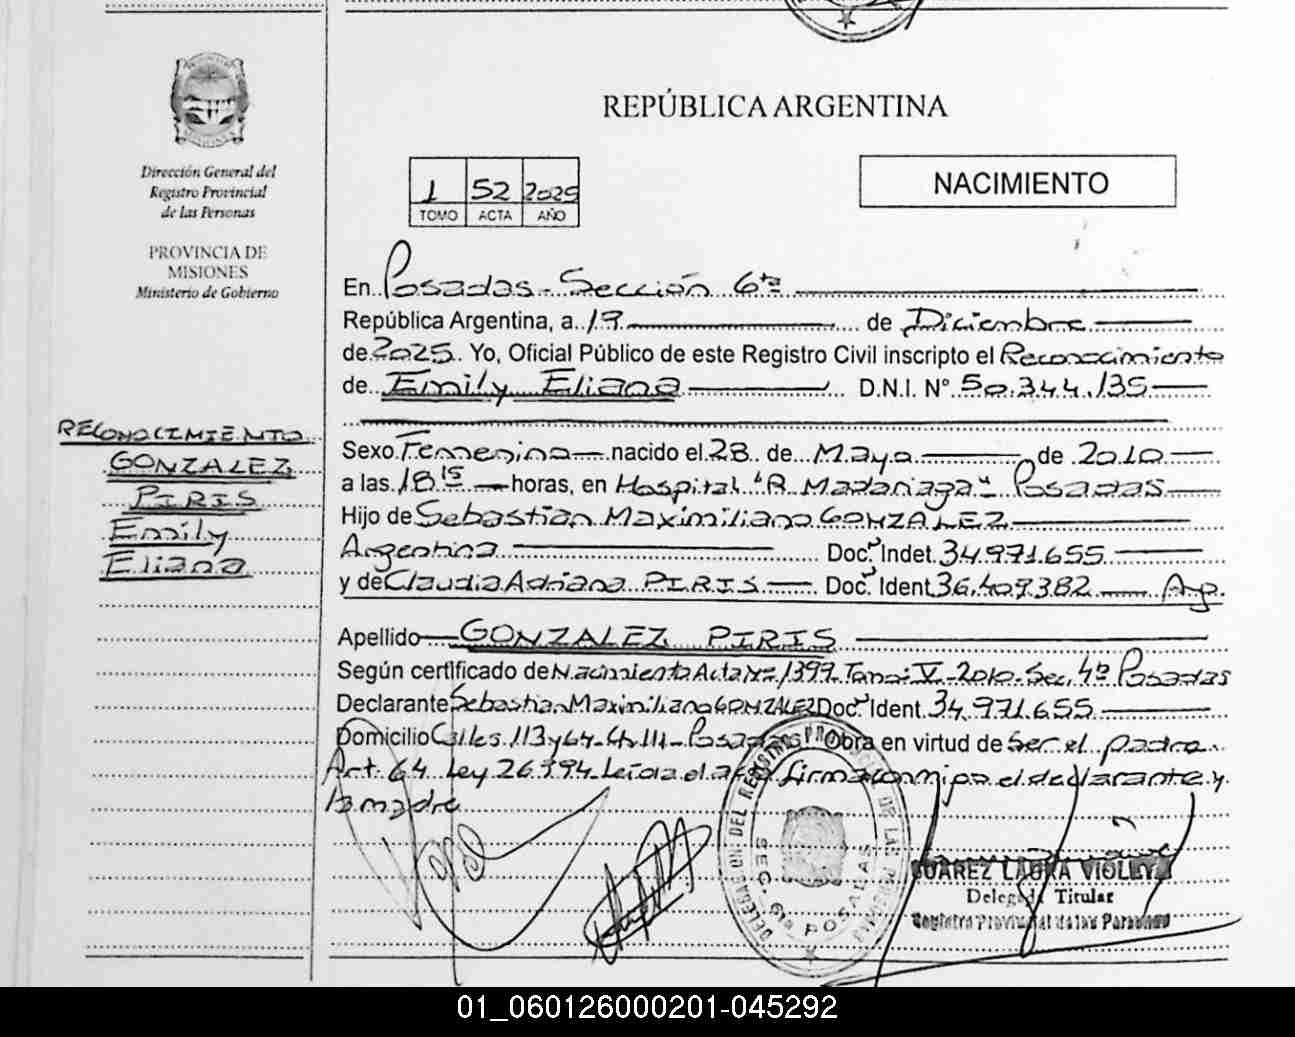 Dirección General del
Registro Provincial
de las Personas
PROVINCIA DE
MISIONES
Ministerio de Gobierno
RECONOCIMIENTO
GONZALEZ
PIRIS
Emily
Eliana
REPÚBLICA ARGENTINA
1 52 2025
TOMO ACTA AÑO
NACIMIENTO
En Posadas - Sección 6ta
República Argentina, a 19 de Diciembre
de 2025. Yo, Oficial Público de este Registro Civil inscripto el Reconocimiento
de Emily Eliana D.N.I. N° 50.344.135
Sexo Femenino nacido el 28 de Mayo de 2010
a las 18 15 horas, en Hospital "R. Madariaga" Posadas
Hijo de Sebastián Maximiliano GONZALEZ
Argentina Doc. Indet. 34.971.655
y de Claudia Adriana PIRIS Doc. Ident. 36.409.382 Arg.
Apellido GONZALEZ PIRIS
Según certificado de Nacimiento Acta N° 1399 Tomo: V - 2010 - Sec. 4ta Posadas
Declarante Sebastian Maximiliano GONZALEZ Doc. Ident. 34.971.655
Domicilio Calles 113 y 64 - Ch 111 - Posadas Obra en virtud de Ser el padre
Art. 64 Ley 26.994 - Leída el acta firma conmigo el declarante y
la madre
DELEGACION DEL REGISTRO PROVINCIAL DE LAS PERSONAS
SEC. 6ta POSADAS
SUAREZ LAURA VIOLETA
Delegada Titular
Registro Provincial de las Personas
01_060126000201-045292